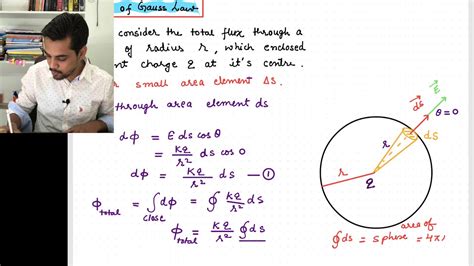 of Gauss Law
consider the total flux through a
of radius r, which enclosed
nt charge q at it's centre.
small area element ΔS.
through area element ds
dϕ = E ds cosθ
= kq/r² ds cos0
dϕ = kq/r² ds — ①
ϕtotal = ∫close dϕ = ∮ kq/r² ds
ϕtotal = kq/r² ∮ds
ds
E
θ = 0
ds
r
r
q
∮ds = area of sphere = 4π